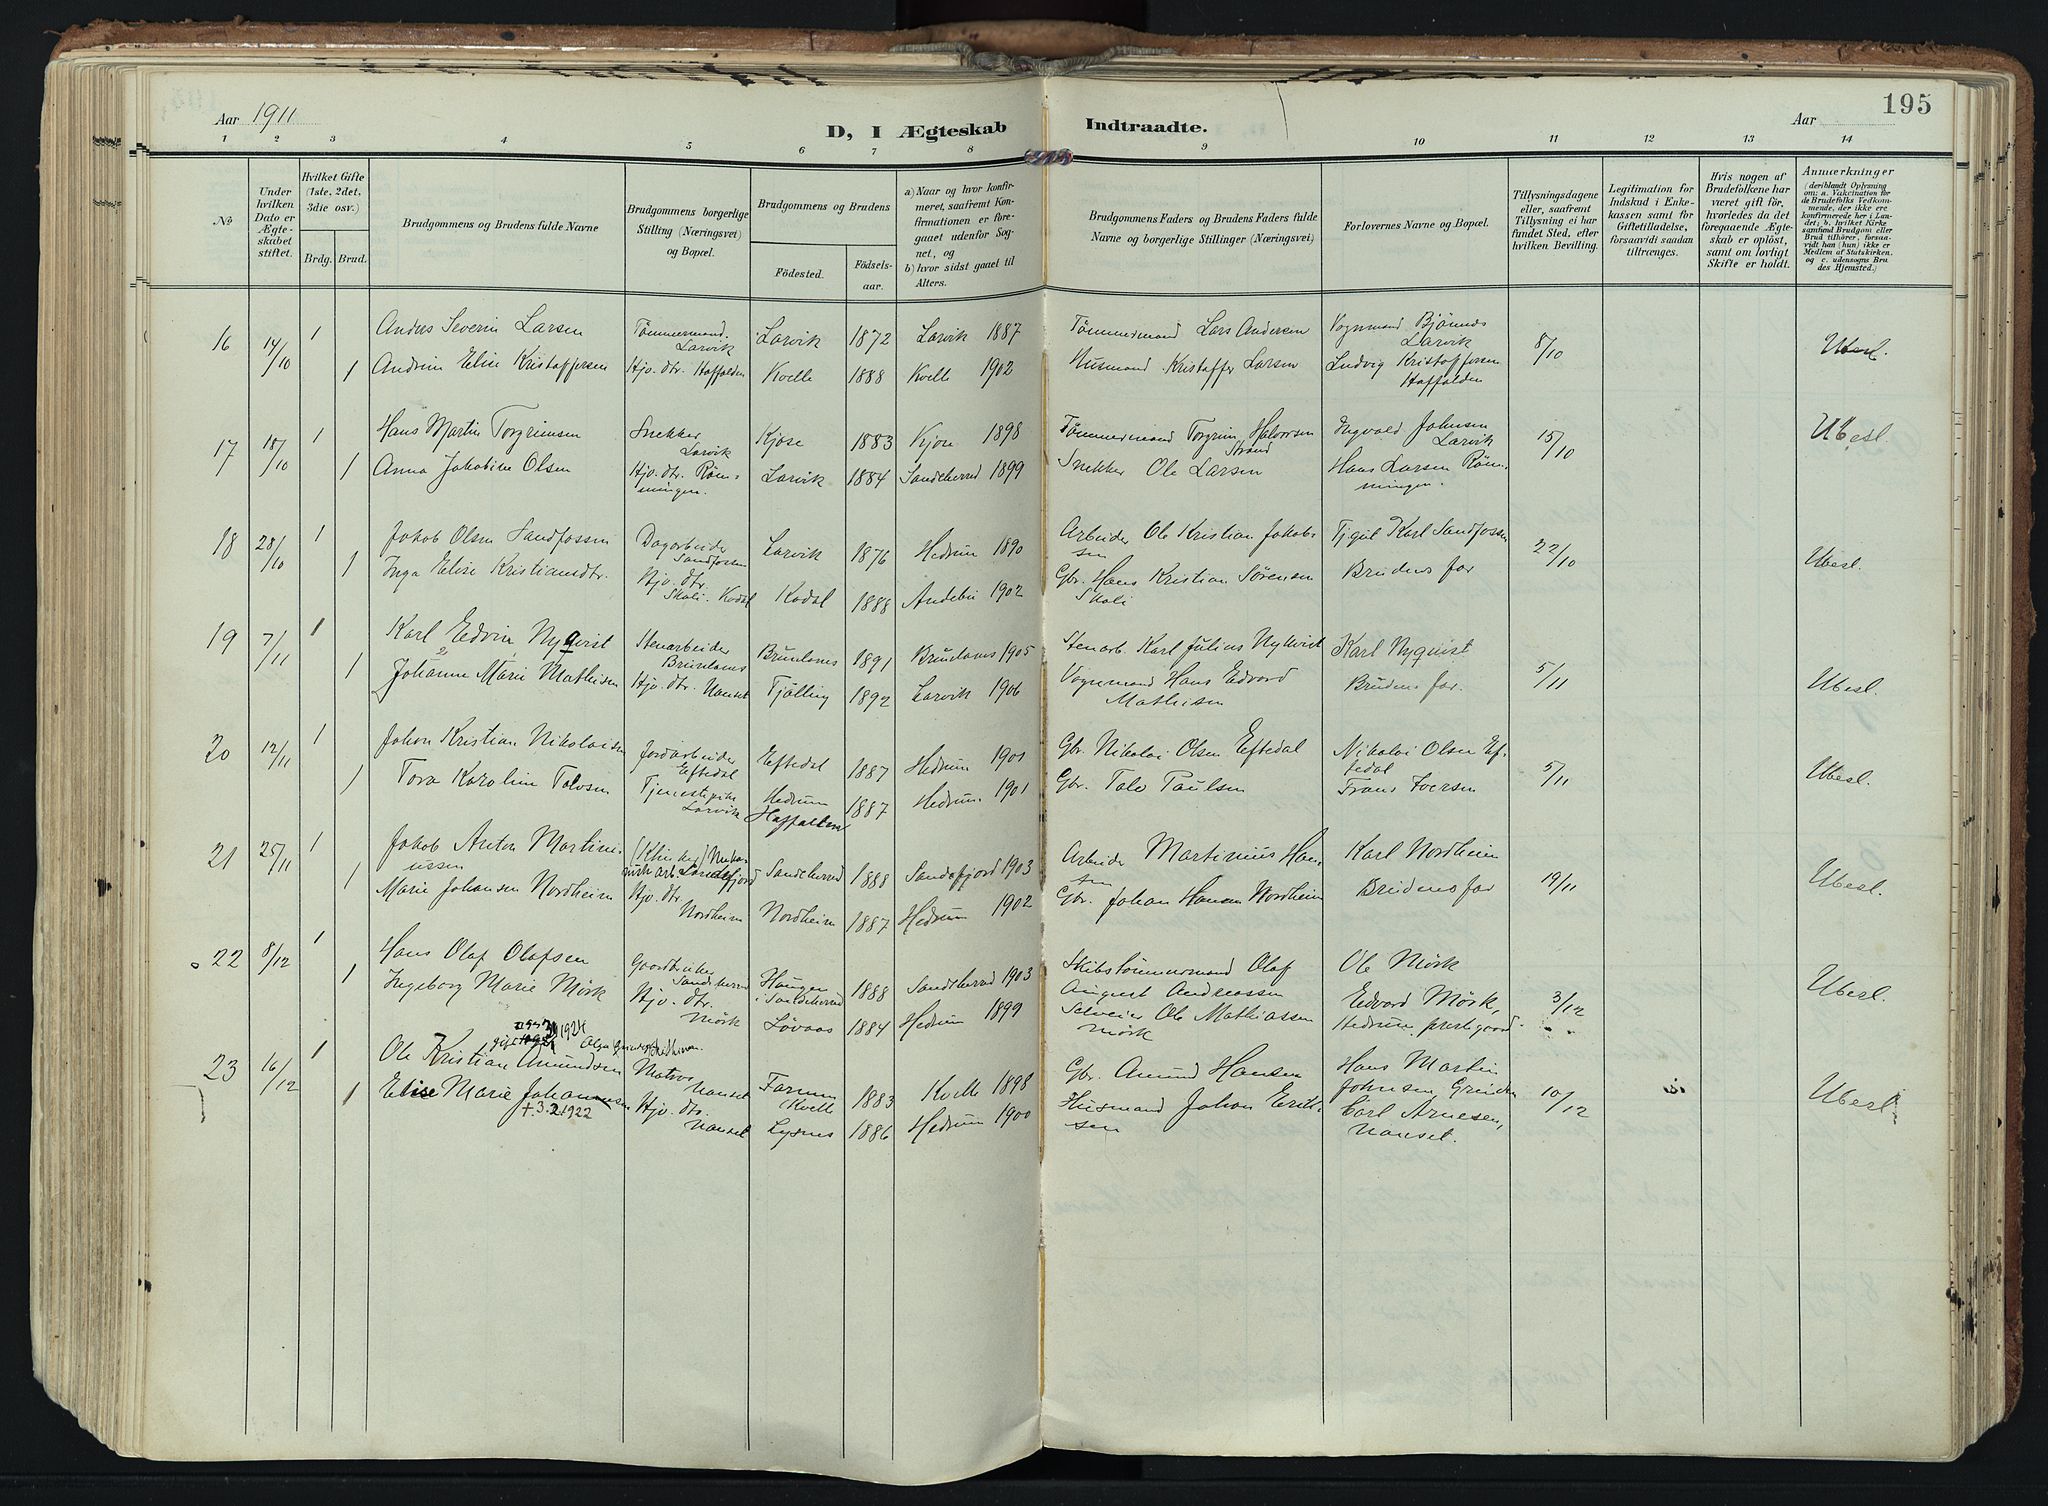 195
Aar 1911
D, I Ægteskab Indtraadte.
Aar
1 2 3 4 5 6 7 8 9 10 11 12 13 14
No
Under hvilken Dato er Ægteskabet stiftet.
Hvilket Gifte (1ste, 2det, 3die osv.)
Brdg. Brud.
Brudgommens og Brudens fulde Navne
Brudgommens borgerlige Stilling (Næringsvei) og Bopæl.
Brudgommens og Brudens
Födested.
Födselsaar.
a) Naar og hvor konfirmeret, saafremt Konfirmationen er foregaaet udenfor Sognet, og
b) hvor sidst gaaet til Alters.
Brudgommens Faders og Brudens Faders fulde Navne og borgerlige Stillinger (Næringsvei)
Forlovernes Navne og Bopæl.
Tillysningsdagene eller, saafremt Tillysning ei har fundet Sted, efter hvilken Bevilling.
Legitimation for Indskud i Enkekassen samt for Giftetilladelse, forsaavidt saadan tiltrænges.
Hvis nogen af Brudefolkene har været gift för, hvorledes da det foregaaende Ægteskab er oplöst, samt om lovligt Skifte er holdt.
Anmærkninger
(deriblandt Oplysning om: a. Vakcination for de Brudefolks Vedkommende, der ikke ere konfirmerede her i Landet; b. hvilket Kirkesamfund Brudgom eller Brud tilhörer, forsaavidt han (hun) ikke er Medlem af Statskirken, og c. udensogns Brudes Hjemsted.)
16 14/10 1 Anders Severin Larsen Tømmermand Larvik Larvik 1872 Larvik 1887 Tømmermand Lars Andersen Vognmand Bjönnes Larvik 8/10 Ubesl.
1 Andrine Elise Kristoffersen Hjv. dtr. Haffalden Kvelle 1888 Kvelle 1902 Husmand Kristoffer Larsen Ludvig Kristoffersen Haffalden
17 18/10 1 Hans Martin Torgrimsen Snekker Larvik Kjose 1883 Kjose 1898 Tømmermand Torgrim Halvorsen Strand Ingvald Johnsen Larvik 15/10 Ubesl.
1 Anna Jakobine Olsen Hjv. dtr. Rømmingen. Larvik 1884 Sandeherred 1899 Snekker Ole Larsen Hans Larsen Rømmingen.
18 28/10 1 Jakob Olsen Sandfossen Dagarbeider Sandfossen Larvik 1876 Hedrum 1890 Arbeider Ole Kristian Jakobsen Karl Sandfossen 22/10 Ubesl.
1 Inga Elise Kristiansdtr. Hjv. dtr. Skoli. Kodal Kodal 1888 Andebu 1902 Gbr. Hans Kristian Sørensen Skoli Brudens far
19 7/11 1 Karl Edvin Nyqvist Stenarbeider Brunlanes Brunlanes 1891 Brunlanes 1905 Stenarb. Karl Julius Nykvist Karl Nyqvist 5/11 Ubesl.
1 Johanne Marie Mathisen Hjv. dtr. Nanset Tjølling 1892 Larvik 1906 Vognmand Hans Edvard Mathisen Brudens far.
20 12/11 1 Johan Kristian Nikolaisen Jordarbeider Eftedal Eftedal 1887 Hedrum 1901 Gbr. Nikolai Olsen Eftedal Nikolai Olsen Eftedal 5/11 Ubesl.
1 Tora Karoline Talvsen Tjenestepike Larvik Hedrum Haffalden 1887 Hedrum. 1901 Gbr. Talv Paulsen Frans Iversen
21 25/11 1 Jakob Anton Martiniussen Sandeherred 1888 Sandefjord 1903 Arbeider Martinius Hansen Karl Nordheim 19/11 Ubesl.
1 Marie Johansen Nordheim Hjv. dtr. Nordheim Nordheim 1887 Hedrum 1902 Gbr. Johan Hansen Nordheim Brudens far
22 8/12 1 Hans Olaf Olafsen Gaardbruker Sandeherred Haugen i Sandeherred 1888 Sandeherred 1903 Skibstømmermand Olaf August Andreassen Ole Mörk 3/12 Ubesl.
1 Ingeborg Marie Mörk Hjv. dtr. Mörk Lövaas 1884 Hedrum 1899 Selveier Ole Mathiassen Mörk Edvard Mörk, Hedrum prestegaard.
23 16/12 1 Ole Kristian Amundsen Matros Nanset Farmen Kvelle 1883 Kvelle 1898 Gbr. Amund Hansen Hans Martin Johnsen Grinden 10/12 Ubesl.
1 Elise Marie Johannsen + 3.2.1922 Hjv. dtr. Nanset Lysnes 1886 Hedrum 1900 Husmand Johan Eriksen Carl Arnesen, Nanset.